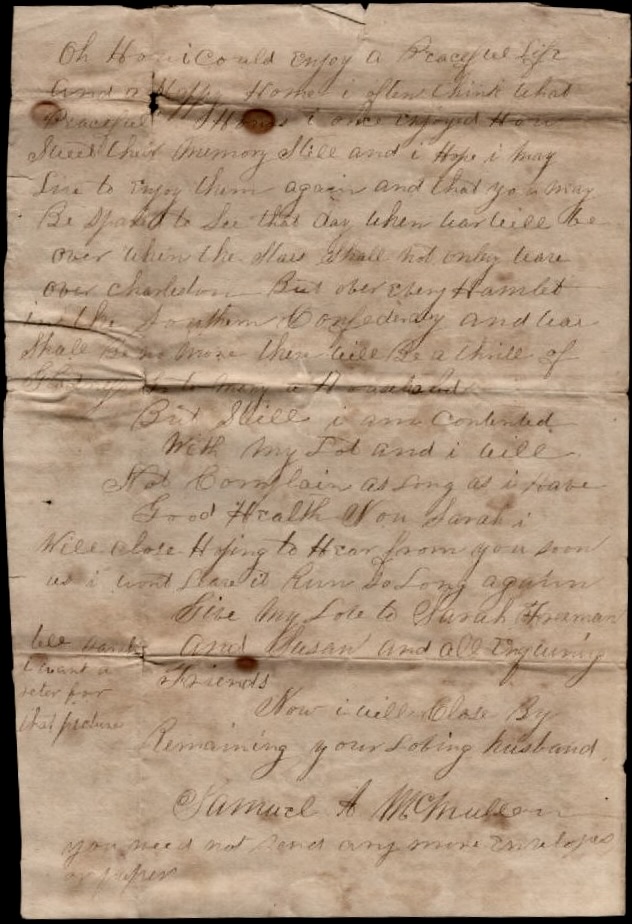 Oh How i Could Enjoy a Peaceful Life
and a Happy Home i often think what
Peaceful Hours i once Enjoyed How
Sweet their Memory Still and i Hope i May
Live to Enjoy them again and that you may
Be Spared to See that day when war will be
over when the Stars Shall not only wave
over Charleston But over Every Hamlet
in the Southern Confederacy and war
Shall be no more then will Be a thrill of
to many a Household
But Still i am Contented
With My Lot and i will
Not Complain as Long as i have
Good Health Now Sarah i
Will Close Hoping to Hear from you soon
as i wont Leave it Run So Long again
Give My Love to Sarah Freeman
And Susan and all Enquiring
Friends
Well Sarah
i want a
leter for
that picture
Now i will Close By
Remaining your Loving husband
Samuel A McMullen
you need not send any more Envelopes
or paper